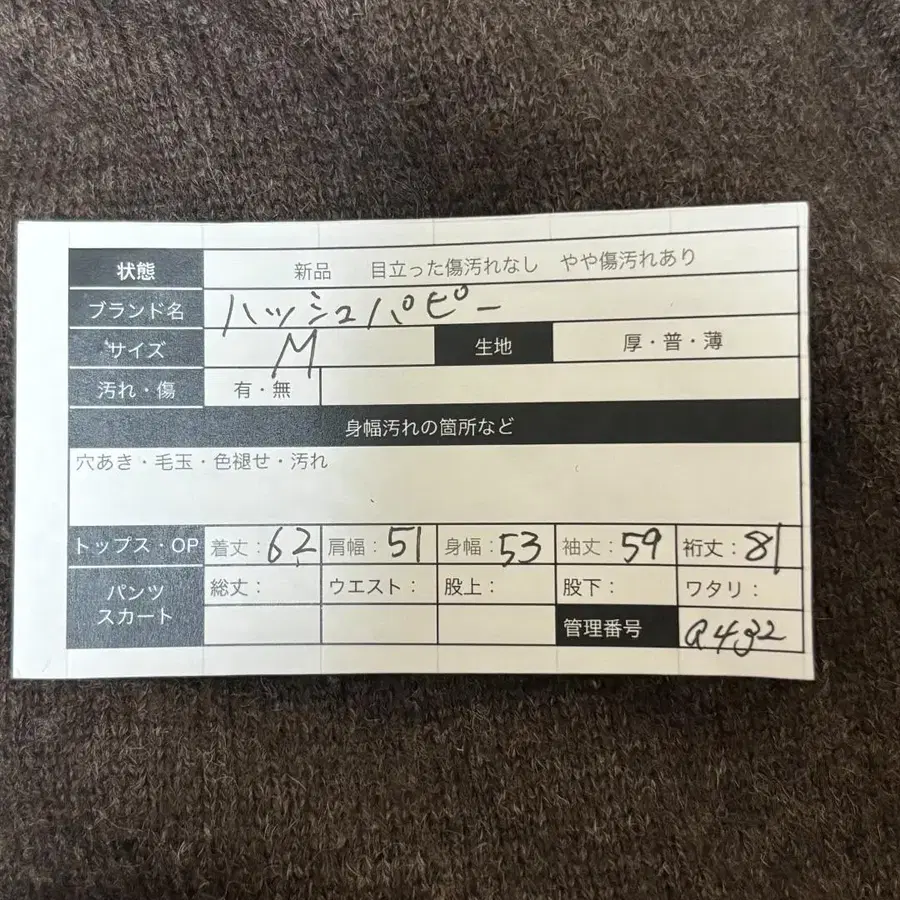 状態 新品 目立った傷汚れなし やや傷汚れあり
ブランド名 ハッシュパピー
サイズ M 生地 厚・普・薄
汚れ・傷 有・無
身幅汚れの箇所など
穴あき・毛玉・色褪せ・汚れ
トップス・OP 着丈：62 肩幅：51 身幅：53 袖丈：59 裄丈：81
パンツ 総丈： ウエスト： 股上： 股下： ワタリ：
スカート 管理番号 a432